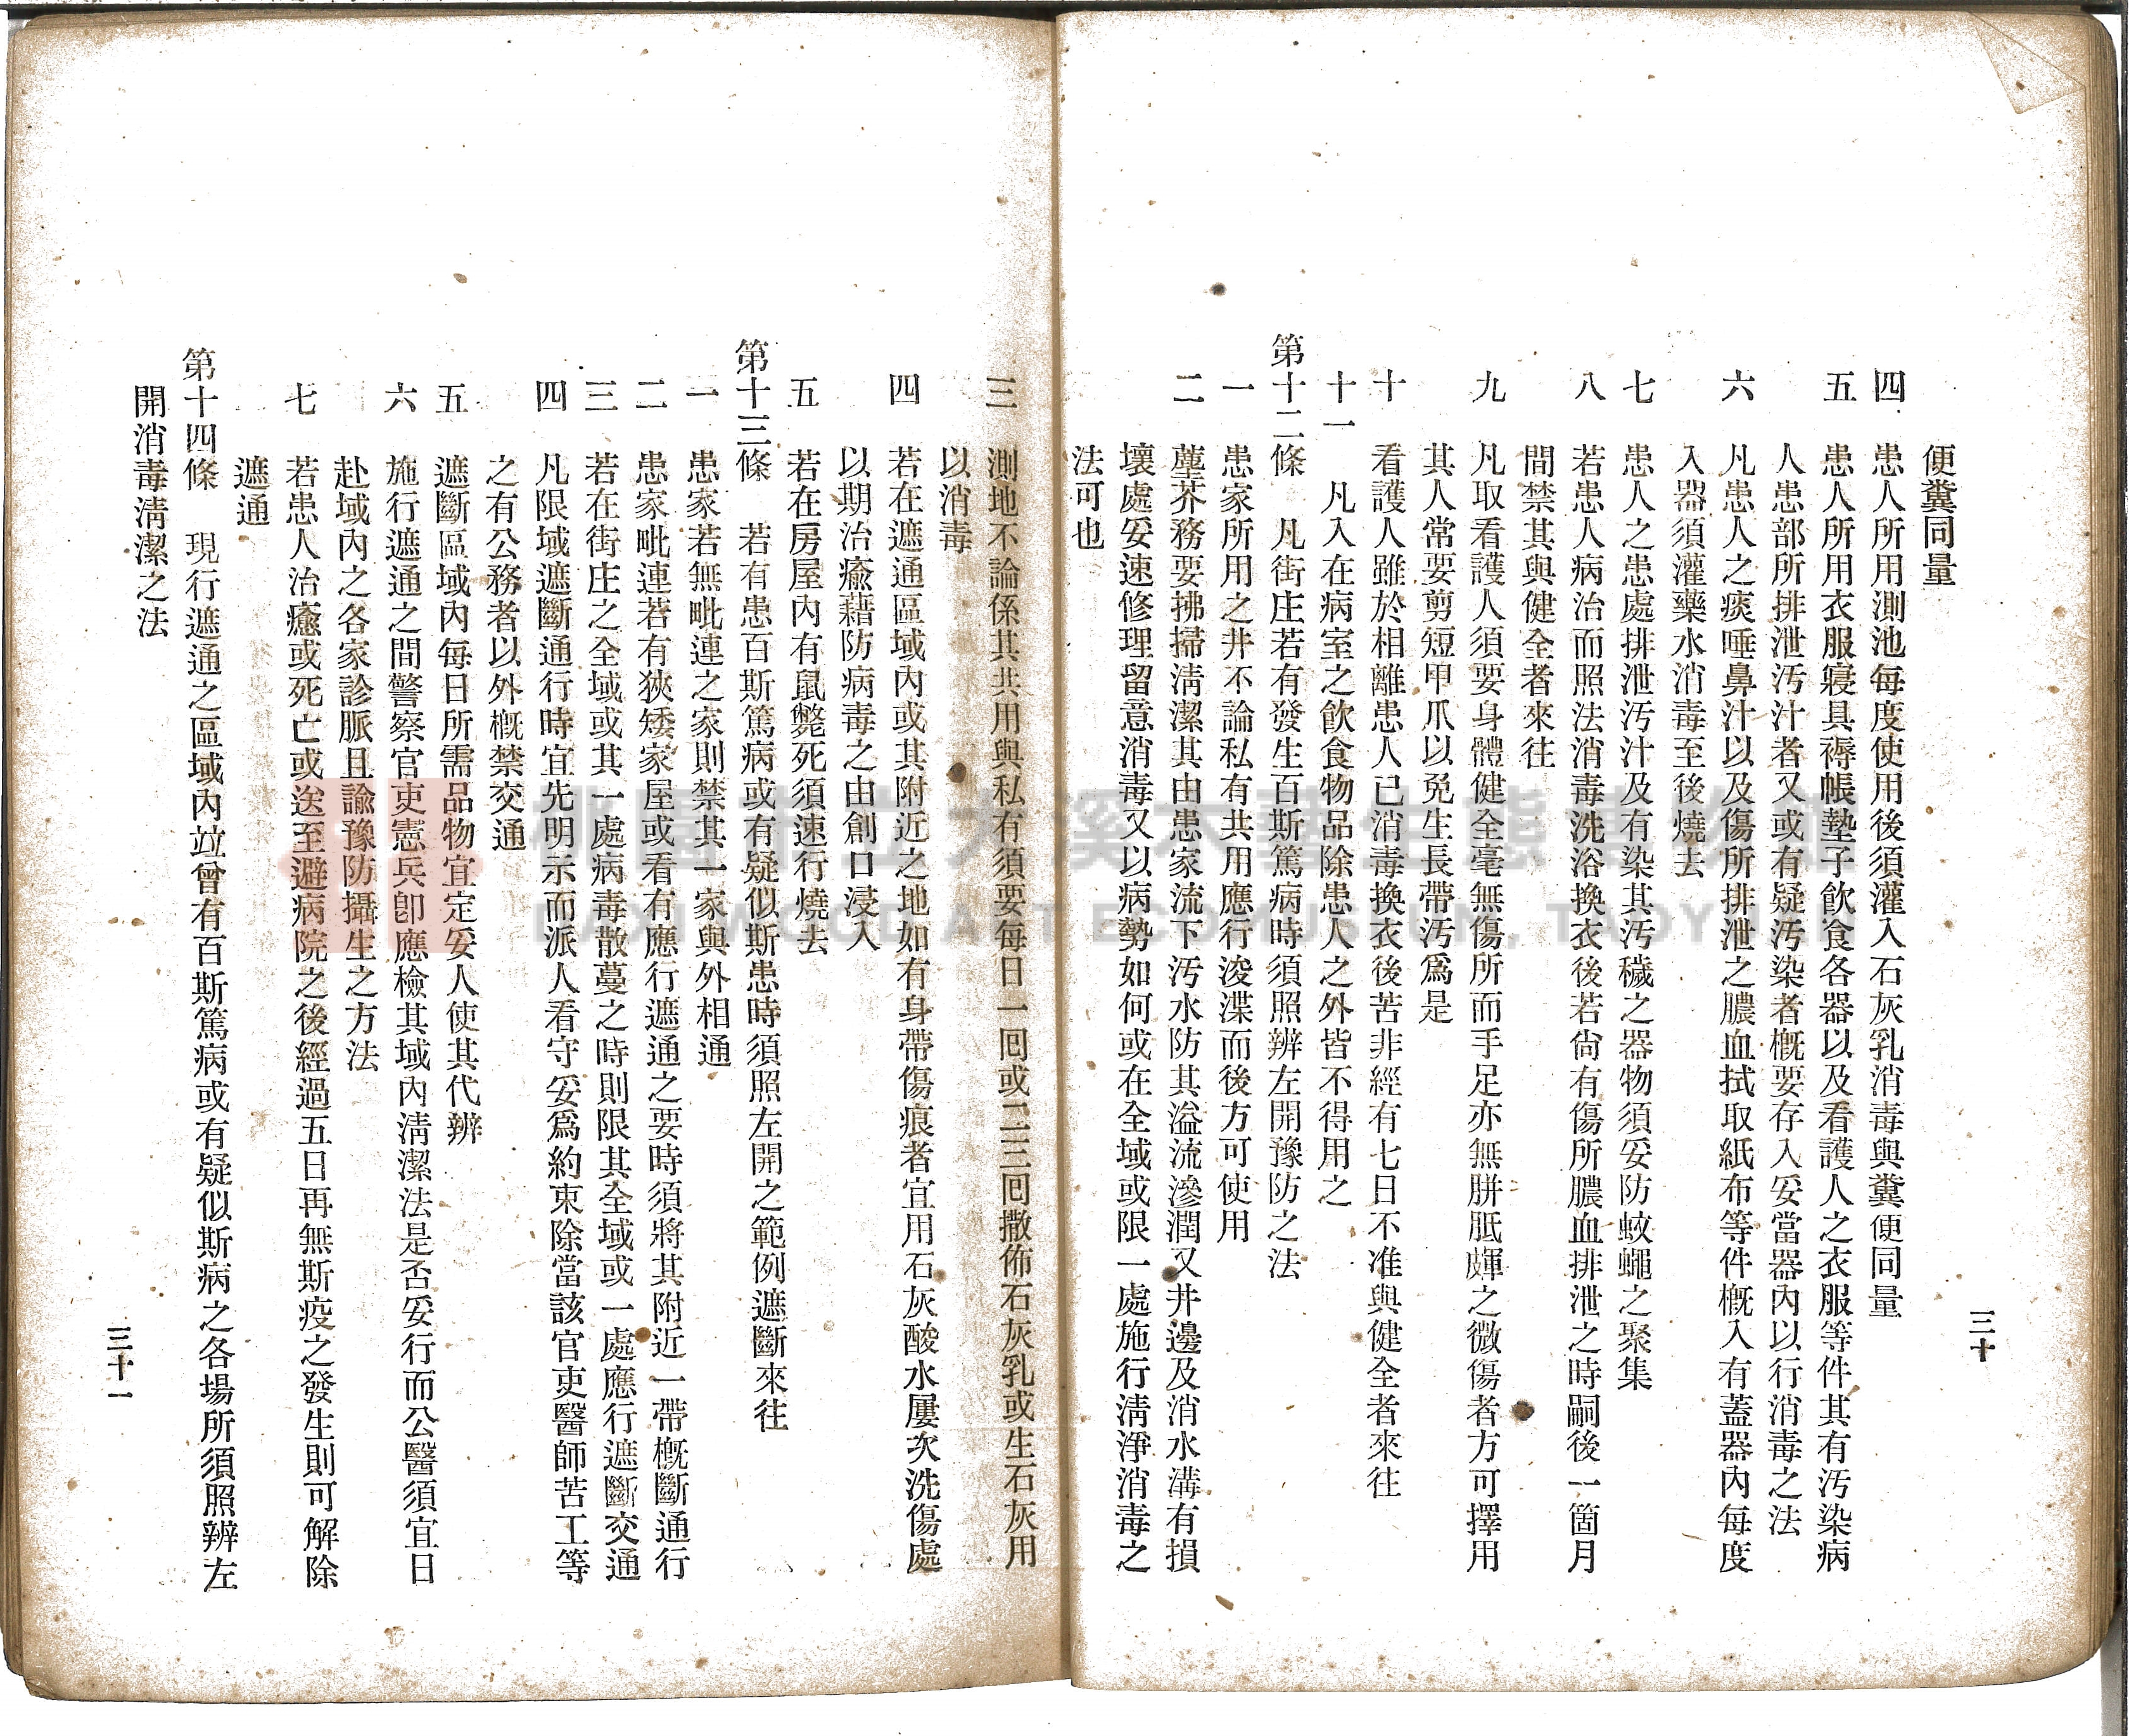 三十
便糞同量
四　患人所用測池每度使用後須灌入石灰乳消毒與糞便同量
五　患人所用衣服寢具褥帳墊子飲食各器以及看護人之衣服等件其有汚染病
人患部所排泄汚汁者又或有疑汚染者概要存入妥當器內以行消毒之法
六　凡患人之痰唾鼻汁以及傷所排泄之膿血拭取紙布等件概入有蓋器內每度
入器須灌藥水消毒至後燒去
七　患人之患處排泄汚汁及有染其汚穢之器物須妥防蚊蠅之聚集
八　若患人病治而照法消毒洗浴換衣後若尙有傷所膿血排泄之時嗣後一箇月
間禁其與健全者來往
九　凡取看護人須要身體健全毫無傷所而手足亦無胼胝皹之微傷者方可擇用
其人常要剪短甲爪以免生長帶汚爲是
十　看護人雖於相離患人已消毒換衣後苦非經有七日不准與健全者來往
十一　凡入在病室之飮食物品除患人之外皆不得用之
第十二條　凡街庄若有發生百斯篤病時須照辨左開豫防之法
一　患家所用之井不論私有共用應行浚渫而後方可使用
二　壅芥務要拂掃淸潔其由患家流下汚水防其溢流滲潤又井邊及消水溝有損
壞處妥速修理留意消毒又以病勢如何或在全域或限一處施行淸淨消毒之
法可也
三　測地不論係其共用與私有須要每日一回或二三回撒佈石灰乳或生石灰用
以消毒
四　若在遮通區域內或其附近之地如有身帶傷痕者宜用石灰酸水屢次洗傷處
以期治癒藉防病毒之由創口浸入
五　若在房屋內有鼠斃死須速行燒去
第十三條　若有患百斯篤病或有疑似斯患時須照左開之範例遮斷來往
一　患家若無毗連之家則禁其一家與外相通
二　患家毗連若有狹矮家屋或看有應行遮通之要時須將其附近一帶概斷通行
三　若在街庄之全域或其一處病毒散蔓之時則限其全域或一處應行遮斷交通
四　凡限域遮斷通行時宜先明示而派人看守妥爲約束除當該官吏醫師苦工等
之有公務者以外概禁交通
五　遮斷區域內每日所需品物宜定妥人使其代辨
六　施行遮通之間警察官吏憲兵卽應檢其域內淸潔法是否妥行而公醫須宜日
赴域內之各家診脈且諭豫防攝生之方法
七　若患人治癒或死亡或送至避病院之後經過五日再無斯疫之發生則可解除
遮通
第十四條　現行遮通之區域內竝曾有百斯篤病或有疑似斯病之各場所須照辨左
開消毒淸潔之法
三十一
桃園市立大溪木藝生態博物館
DAXI WOOD ART ECOMUSEUM, TAOYUAN